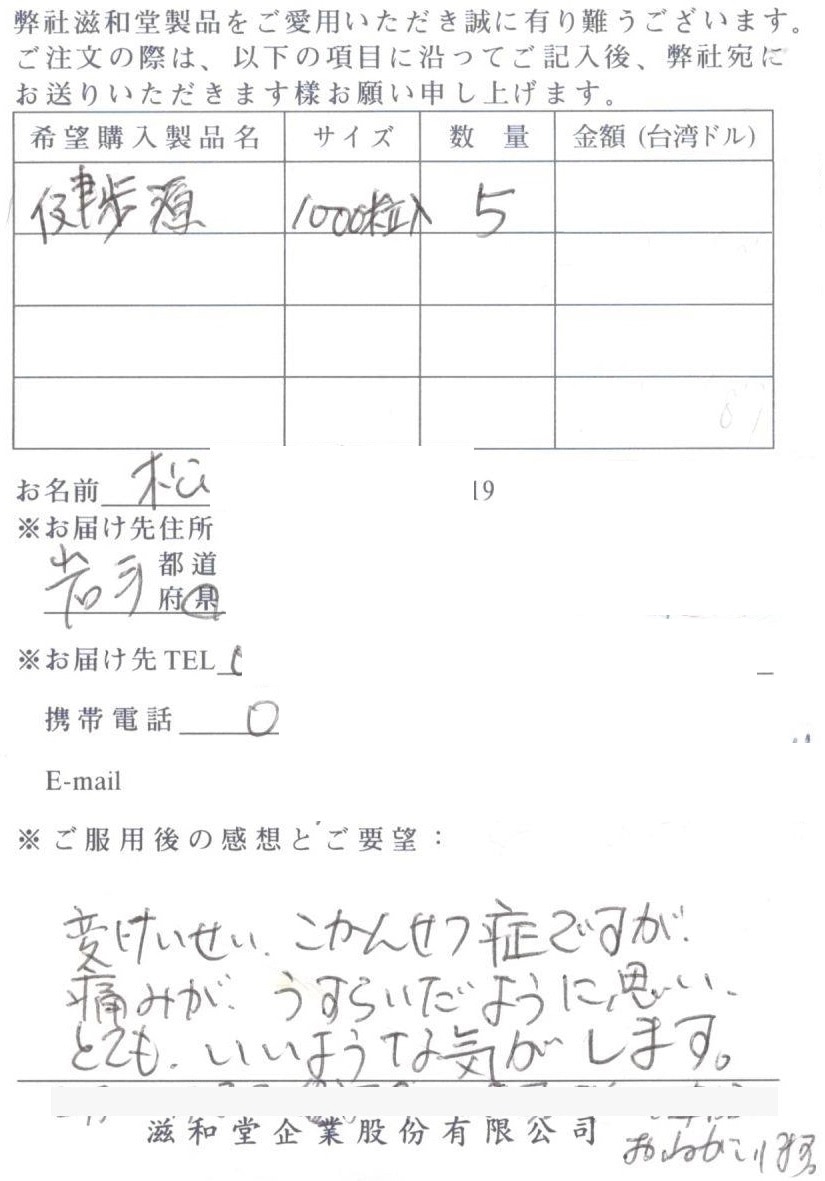 弊社滋和堂製品をご愛用いただき誠に有り難うございます。
ご注文の際は、以下の項目に沿ってご記入後、弊社宛に
お送りいただきます様お願い申し上げます。
希望購入製品名 サイズ 数量 金額 (台湾ドル)
健歩源 1000粒入 5
お名前 松 19
※お届け先住所
岩手 都道
府県
※お届け先 TEL
携帯電話 0
E-mail
※ご服用後の感想とご要望：
変けいせい、こかんせつ症ですが、
痛みが、うすらいだように思い、
とても、いいような気がします。
滋和堂企業股份有限公司